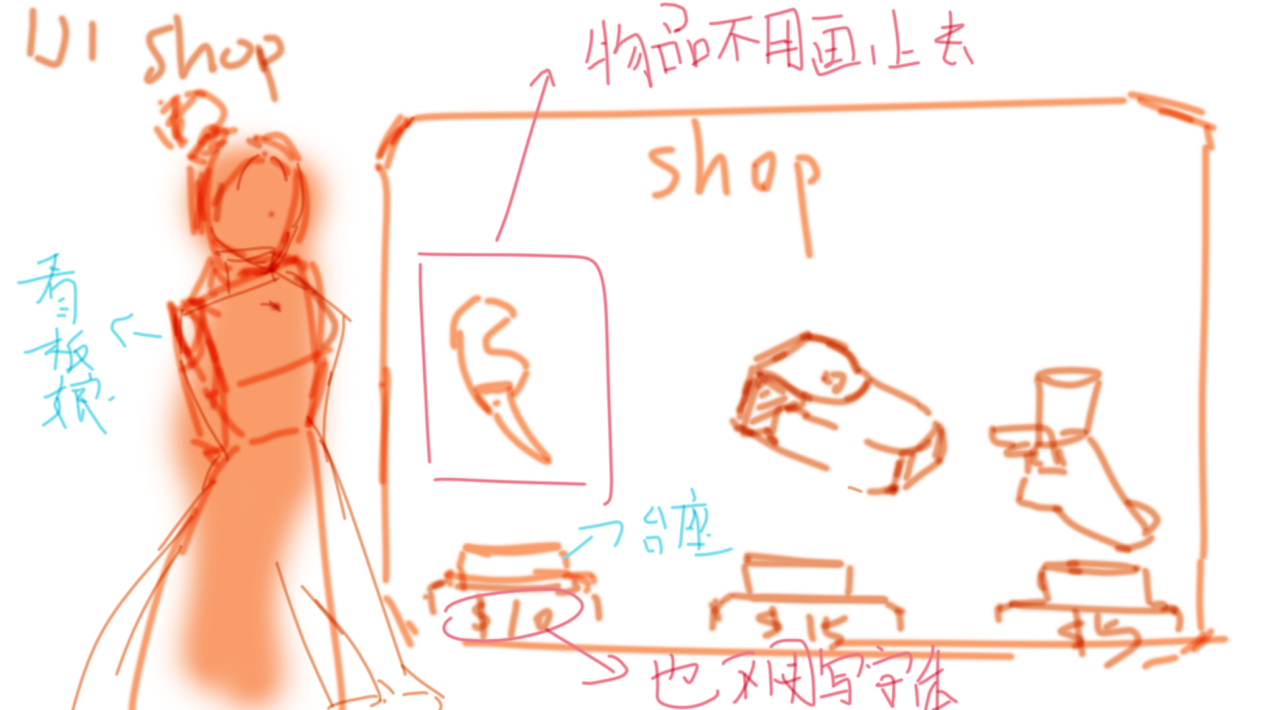 UI shop
物品不用画上去
shop
看
板
娘
台座
$10
$15
$5
也不用写字体